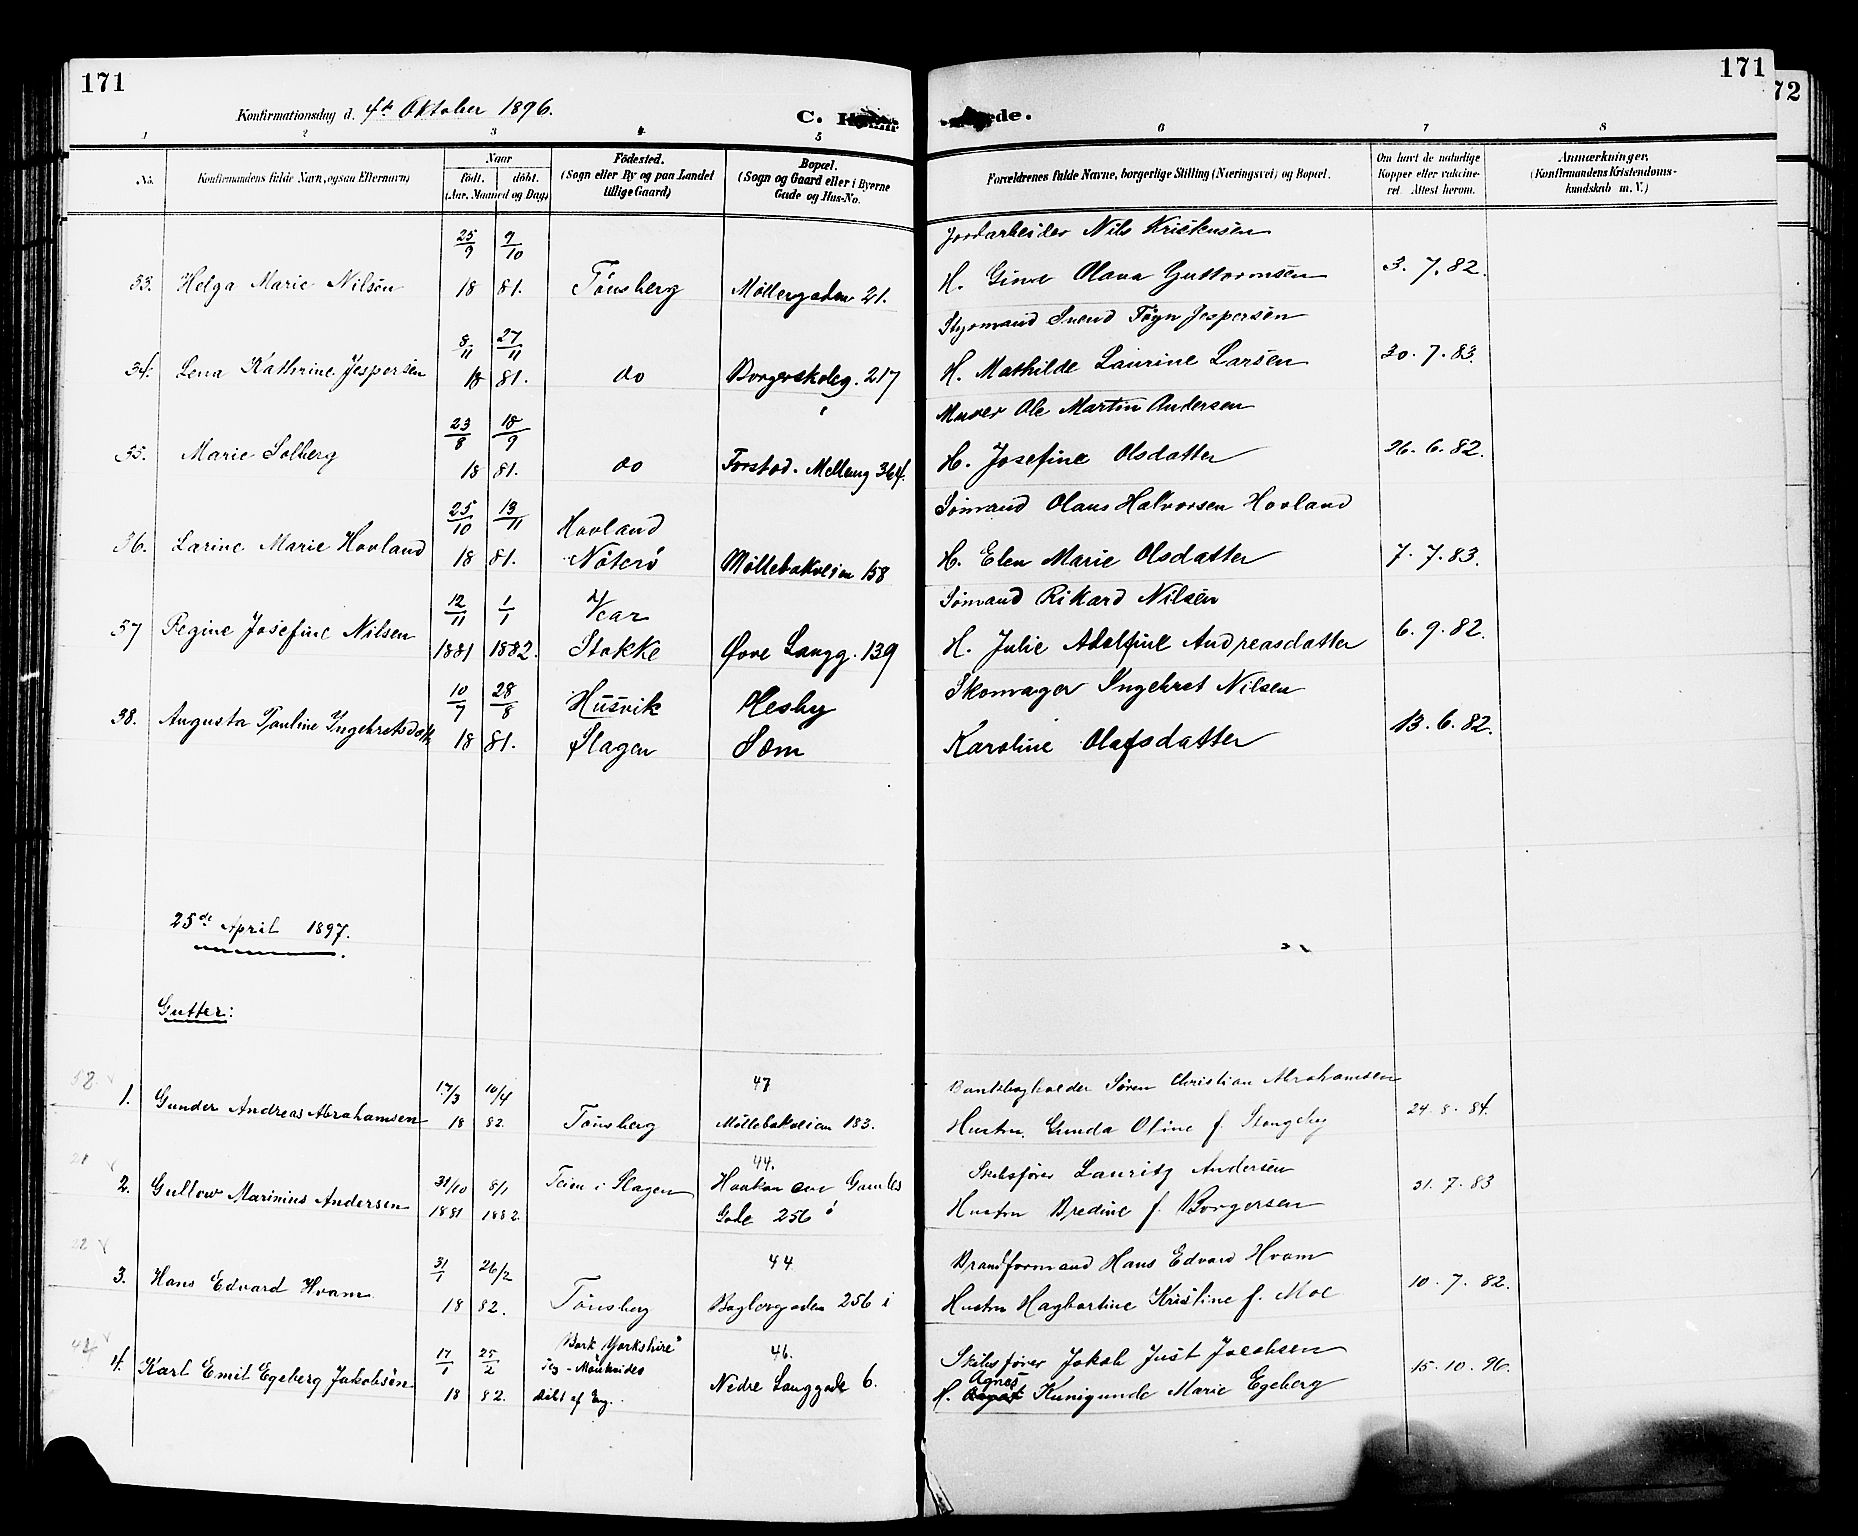 171
171
72
Konfirmationsdag d. 4de Oktober 1896.
C. de.
1 2 3 4 5 6 7 8
No.
Konfirmandens fulde Navn, ogsaa Efternavn)
Naar
Födt. döbt.
(Aar, Maaned og Dag)
Födested.
(Sogn eller By og paa Landet
tillige Gaard)
Bopæl.
(Sogn og Gaard eller i Byerne
Gade og Hus-No.
Forældrenes fulde Navne, borgerlige Stilling (Næringsvei) og Bopæl.
Om havt de naturlige
Kopper eller vakcine-
ret. Attest herom.
Anmærkninger.
(Konfirmandens Kristendoms-
kundskab m. V.)
25/9 9/10 Jordarbeider Nils Kristensen
33. Helga Marie Nilsen 18 81. Tönsberg Möllergaden 21. H. Gine Olava Guttormsen 3. 7. 82.
8/11 27/11 Styrmand Svend Föyn Jespersen
34. Lena Kathrine Jespersen 18 81. do Borgerskoleg. 217 H. Mathilde Laurine Larsen 30. 7. 83.
23/8 18/9 Murer Ole Martin Andersen
35. Marie Solberg 18 81. do Forstad. Mellemg 364. H. Josefine Olsdatter 26. 6. 82.
25/10 13/11 Hovland Sömand Olaus Halvorsen Hovland
36. Larine Marie Hovland 18 81. Nöterö Möllebakveien 158 H. Elen Marie Olsdatter 7. 7. 83.
12/11 1/1 Vear Sömand Rikard Nilsen
37 Regine Josefine Nilsen 1881 1882. Stokke Övre Langg. 139 H. Julie Adolfine Andreasdatter 6. 9. 82.
10/7 28/8 Husvik Hesby Skomager Ingebret Nilsen
38. Augusta Pauline Ingebretsdatt 18 81. Slagen Sem Karoline Olafsdatter 13. 6. 82.
25de April 1897.
Gutter:
52 17/3 10/4 47 Bankbogholder Sören Christian Abrahamsen
1. Gunder Andreas Abrahamsen 18 82. Tönsberg Möllebakveien 183. Hustru Gunda Oline f. Stengeby 24. 8. 84.
21 31/10 8/1 Teien i Slagen 44. Skibsförer Lauritz Andersen
2. Gullow Marinius Andersen 1881 1882. Gamle Gade 256 i Hustru Bredine f. Borgersen 31. 7. 83
22 31/1 26/2 44 Brandformand Hans Edvard Hvam
3. Hans Edvard Hvam 18 82. Tönsberg Baglergaden 256 i Hustru Hagbartine Kristine f. Moe 10. 7. 82.
17/1 25/2 "Bark Yorkshire" 46. Skibsförer Jakob Just Jacobsen
4. Karl Emil Egeberg Jakobsen 18 82. Döbt af Eng. Nedre Langgade 6. Agnes
H. Kunigunde Marie Egeberg 15. 10. 96.